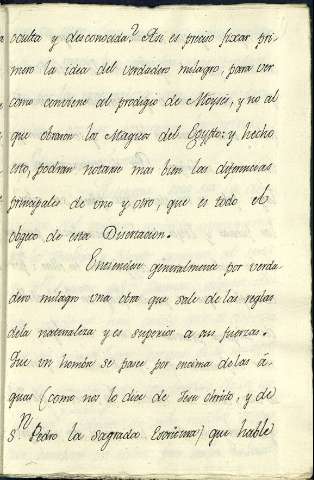 oculta y desconocida? Asi es preciso fixar pri-
mero la idea del verdadero milagro, para ver
como conviene al prodigio de Moyses, y no al
que obraron los Magos del Egypto; y hecho
esto, podran notarse mas bien las diferencias
principales de uno y otro, que es todo el
objeto de esta Disertacion.
Entiendese generalmente por verda-
dero milagro una obra que sale de las reglas
dela naturaleza y es superior a sus fuerzas.
Que un hombre se pasee por encima delas á-
guas (como nos lo dice de Jesu christo, y de
Sn. Pedro la sagrada Escritura) que hable